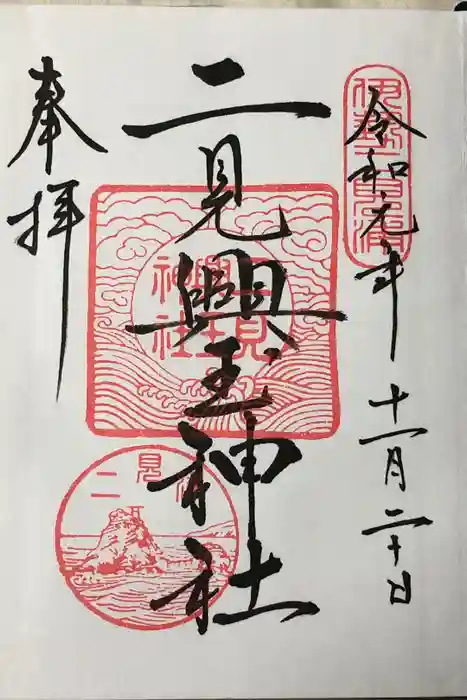 伊勢二見浦
令和元年十一月二十日
二見興玉神社
二見興玉神社
二見浦
奉拝